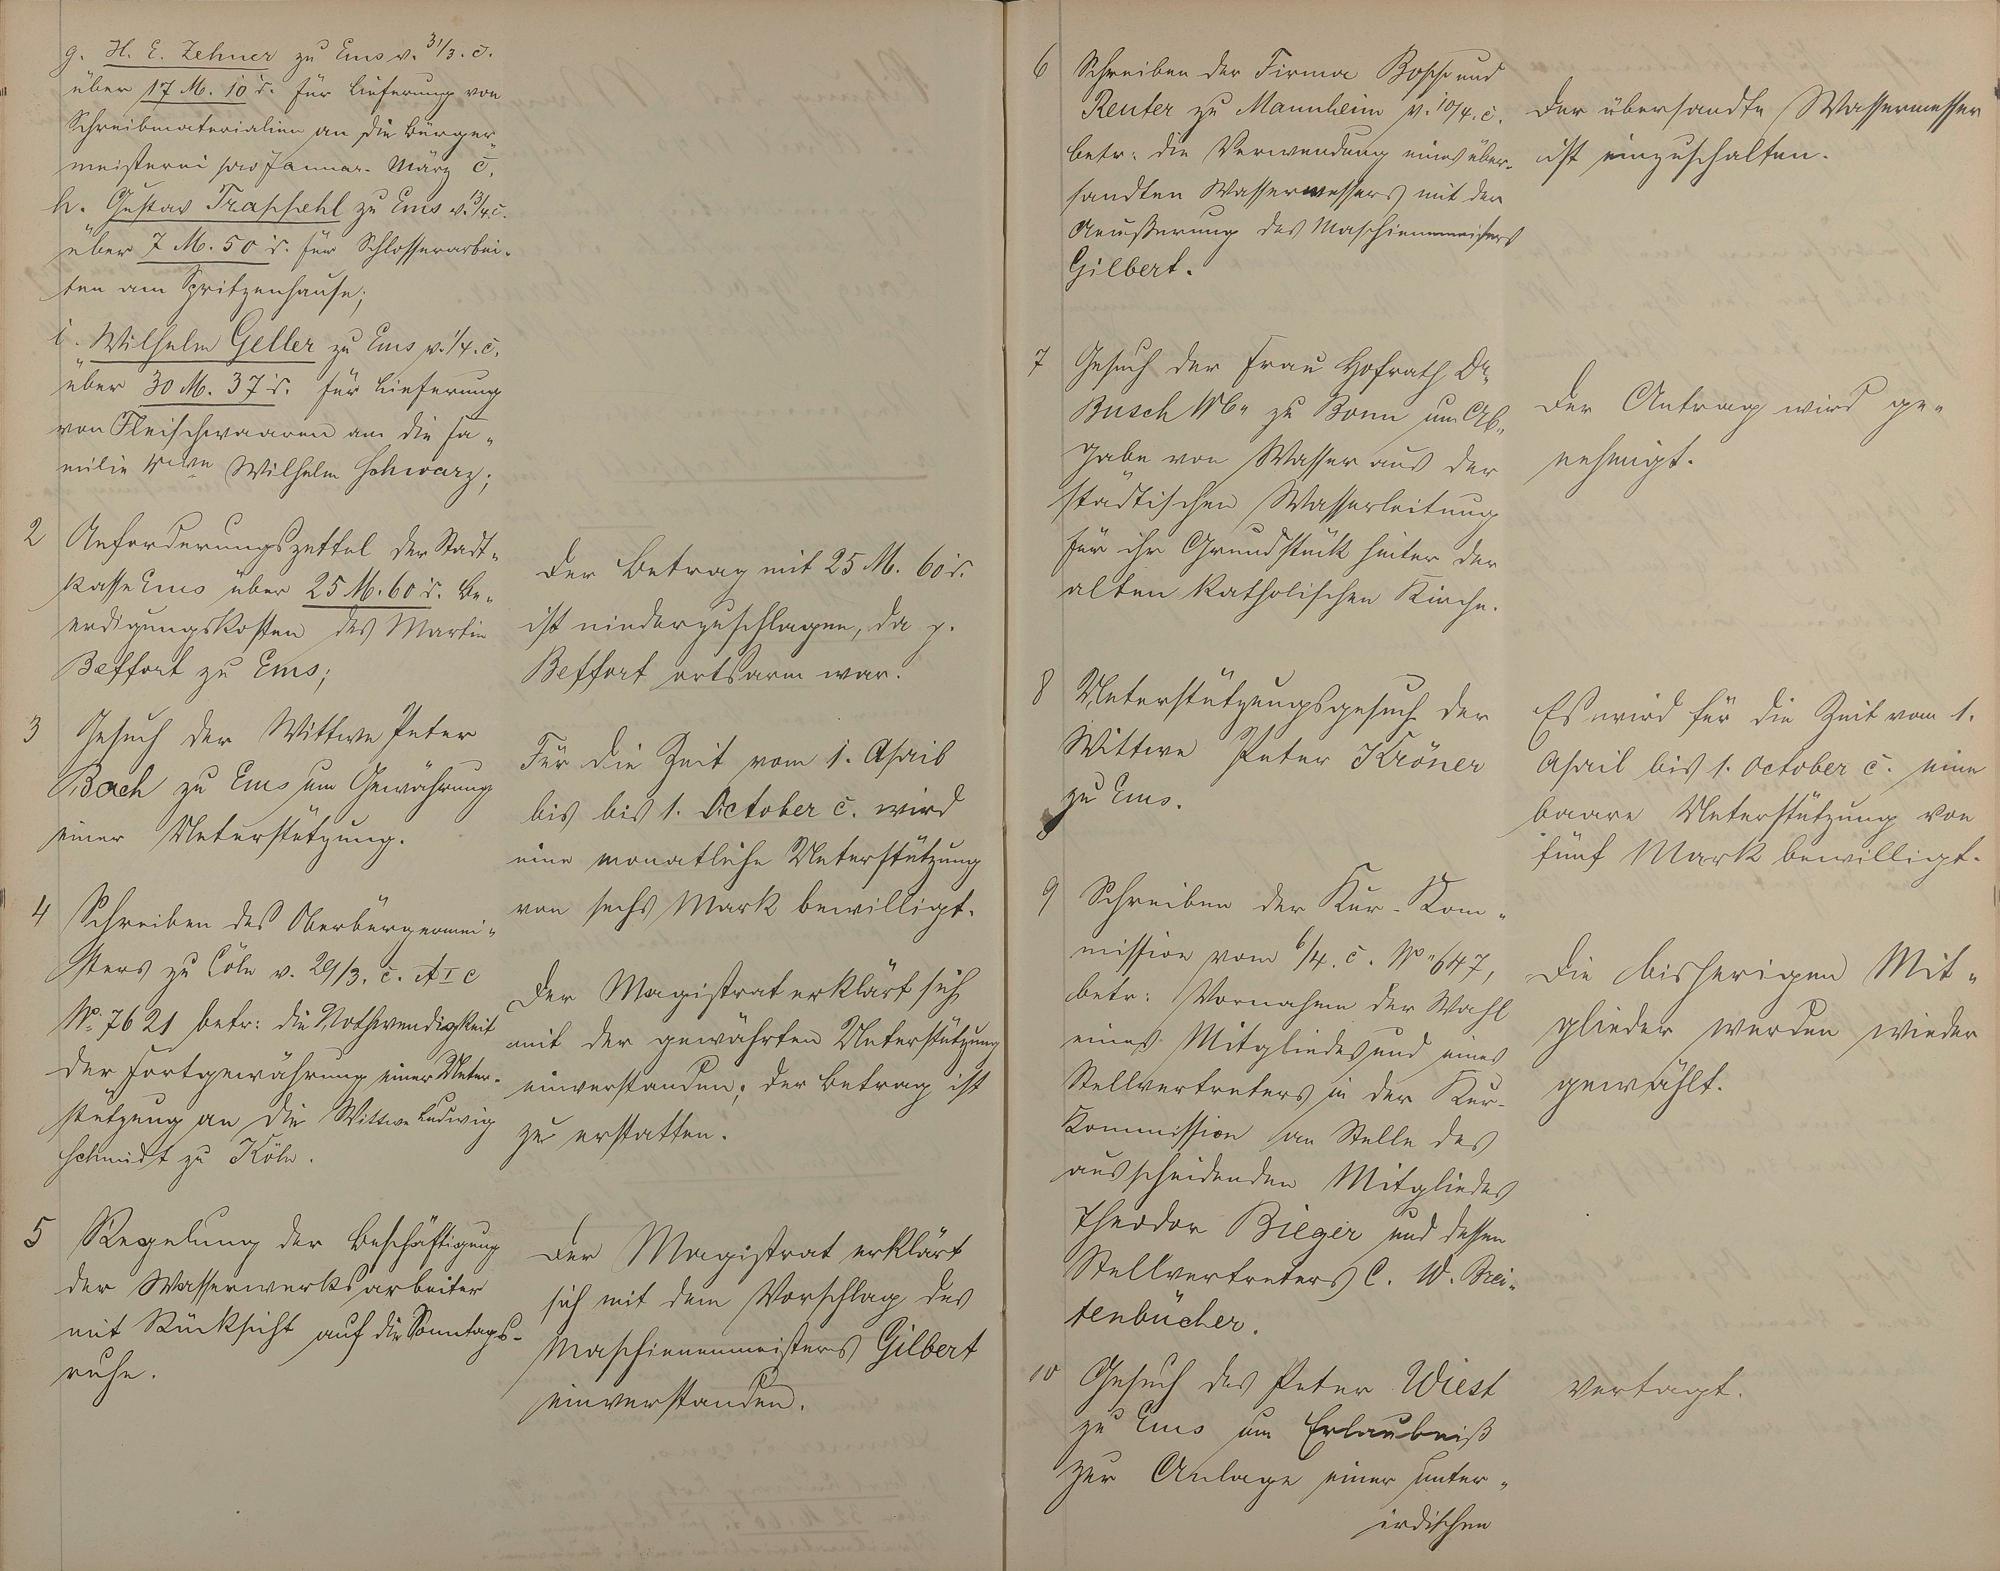 g. H. E. Zehner zu Ems v. 31/3. c.
über 17 M. 10 d. für Lieferung von
Schreibmaterialien an die Bürger-
meisterei pro Januar-März c.
h. Gustav Trappehl zu Ems v. 13/4. c.
über 7 M. 50 d. für Schlosserarbei-
ten am Spritzenhause;
i. Wilhelm Geller zu Ems v. 1/4. c.
über 30 M. 37 d. für Lieferung
von Fleischwaaren an die Fa-
milie Wwe Wilhelm Schwarz;
2 Anforderungszettel der Stadt-
kasse Ems über 25 M. 60 d. Be-
erdigungskosten des Martin
Beffort zu Ems;
Der Betrag mit 25 M. 60 d.
ist niederzuschlagen, da p.
Beffort ortsarm war.
3 Gesuch der Wittwe Peter
Bach zu Ems um Gewährung
einer Unterstützung.
Für die Zeit vom 1. April
bis bis 1. October c. wird
eine monatliche Unterstützung
von sechs Mark bewilligt.
4 Schreiben des Oberbürgermei-
sters zu Cöln v. 29/3. c. A I c
No. 7621 betr: die Nothwendigkeit
der Fortgewährung einer Unter-
stützung an die Wittwe Ludwig
Schmidt zu Köln.
Der Magistrat erklärt sich
mit der gewährten Unterstützung
einverstanden; der Betrag ist
zu erstatten.
5 Regelung der Beschäftigung
der Wasserwerksarbeiter
mit Rücksicht auf die Sonntags-
ruhe.
Der Magistrat erklärt
sich mit dem Vorschlag des
Maschienenmeisters Gilbert
einverstanden.
6 Schreiben der Firma Bopp und
Reuter zu Mannheim v. 10/4. c.
betr: die Verwendung eines über-
sandten Wassermessers mit der
Aeußerung des Maschienenmeisters
Gilbert.
Der übersandte Wassermesser
ist einzuschalten.
7 Gesuch der Frau Hofrath Dr.
Busch Wwe zu Bonn um Ab-
gabe von Wasser aus der
städtischen Wasserleitung
für ihr Grundstück hinter der
alten katholischen Kirche.
Der Antrag wird ge-
nehmigt.
8 Unterstützungsgesuch der
Wittwe Peter Kröner
zu Ems.
Es wird für die Zeit vom 1.
April bis 1. October c. eine
baare Unterstützung von
fünf Mark bewilligt.
9 Schreiben der Kur-Kom-
mission vom 6/4. c. No. 647,
betr: Vornahme der Wahl
eines Mitgliedes und eines
Stellvertreters in der Kur-
Kommission an Stelle des
ausscheidenden Mitgliedes
Theodor Bieger und dessen
Stellvertreters C. W. Brei-
tenbücher.
Die bisherigen Mit-
glieder werden wieder
gewählt.
10 Gesuch des Peter Wiest
zu Ems um Erlaubniß
zur Anlage einer unter-
irdischen
Vertagt.